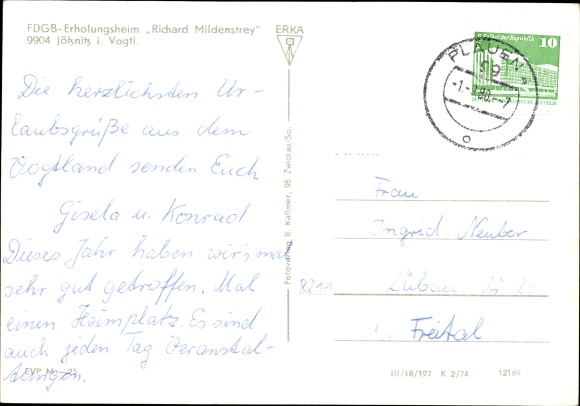 FDGB-Erholungsheim „Richard Mildenstrey"
9904 Jößnitz i. Vogtl.
ERKA
Die herzlichsten Ur-
laubsgrüße aus dem
Vogtland senden Euch
Gisela u. Konrad
Dieses Jahr haben wir's mal
sehr gut getroffen. Mal
einen Heimplatz. Es sind
auch jeden Tag Veranstal-
tungen.
EVP M -,25
Fotoverlag R. Kallmer, 95 Zwickau/Sa.
Palast der Republik 10
PLAUEN
99
-1.
80.--7
Frau
Ingrid Neuber
8211 Lübau Nr 20
Freital
III/18/197 K 2/74 12169